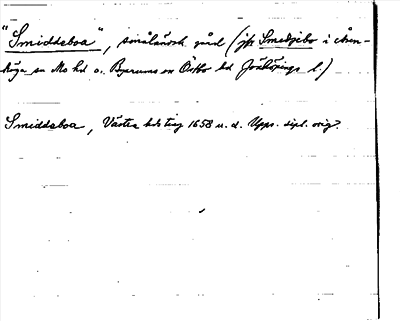 "Smiddeboa", småländsk gård (jfr Smedjebo i Åker-
höga sn Mo hd o. Byarums sn Östbo hd Jönköpings l.)
Smiddeboa, Västra hds ting 1658 u. d. Upps. dipl. orig?